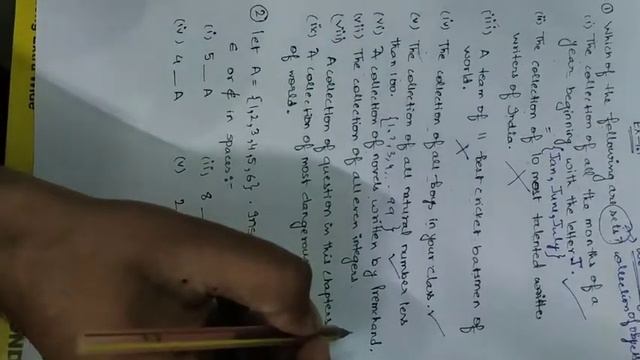 ① Which of the following are sets
(i) The collection of all the months of a
year beginning with the letter J.
= {Jan, June, July}
(ii) The collection of 10 most talented writers
writers of India.
(iii) A team of 11 best cricket batsmen of
world.
(iv) The collection of all boys in your class.
(v) The collection of all natural number less
than 100. {1, 2, 3, 4, ... 99}
(vi) A collection of novels written by Premchand.
(vii) The collection of all even integers
(viii) A collection of question in this chapters
(ix) A collection of most dangerous
of world.
② Let A = {1, 2, 3, 4, 5, 6}.
∈ or ∉ in spaces:-
(i) 5 _ A (ii) 8 _
(iv) 4 _ A (v) 2